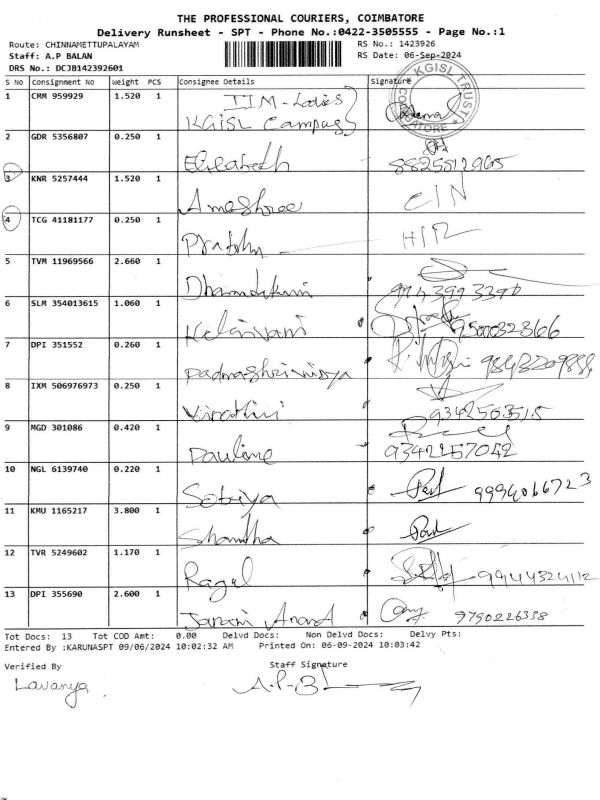 THE PROFESSIONAL COURIERS, COIMBATORE
Delivery Runsheet - SPT - Phone No.:0422-3505555 - Page No.:1
Route: CHINNAMETTUPALAYAM RS No.: 1423926
Staff: A.P BALAN RS Date: 06-Sep-2024
DRS No.: DC3B142392601
S No Consignment No Weight PCS Consignee Details Signature
KGISL TRUST COIMBATORE
1 CMM 959929 1.520 1 IIM-Ladies
KGISL Campus
2 GDR 5356807 0.250 1
Elizabeth 8825512965
3 KNR 5257444 1.520 1
Amashree
4 TCG 41181177 0.250 1
5 TVM 11969566 2.660 1
9943993390
6 SLM 354013615 1.060 1
Kalaivani 9500032366
7 DPI 351552 0.260 1
8 IXM 506976973 0.250 1
9342563515
9 MGD 301086 0.420 1
Pauline 9342257042
10 NGL 6139740 0.220 1
9994066723
11 KMU 1165217 3.800 1
12 TVR 5249602 1.170 1
Ragul 9944324112
13 DPI 355690 2.600 1
Janani Anand 9790226338
Tot Docs: 13 Tot COD Amt: 0.00 Delvd Docs: Non Delvd Docs: Delvy Pts:
Entered By :KARUNASPT 09/06/2024 10:02:32 AM Printed On: 06-09-2024 10:03:42
Verified By Staff Signature
Lavanya A.P-B